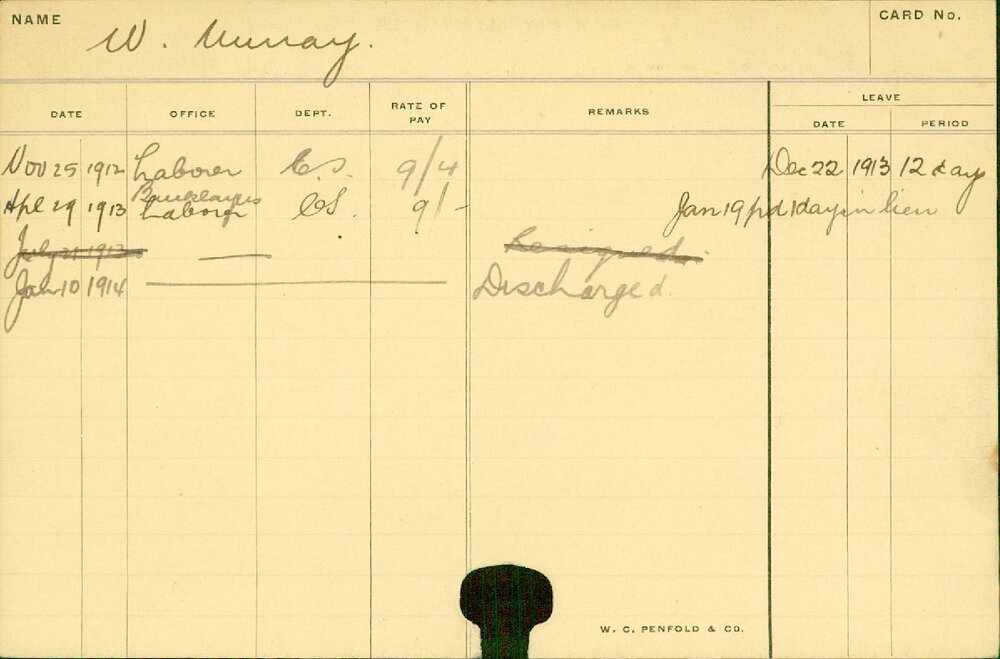 NAME
W. Murray.
CARD No.
DATE
OFFICE
DEPT.
RATE OF PAY
REMARKS
LEAVE
DATE
PERIOD
Nov 25 1912 Laborer C.S. 9/4 Dec 22 1913 12 day
Apl 29 1913 Laborer CS. 9/- Jan 19 pd 1 day in lieu
July 21 1913 Resigned.
Jan 10 1914 Discharged
W. C. PENFOLD & CO.